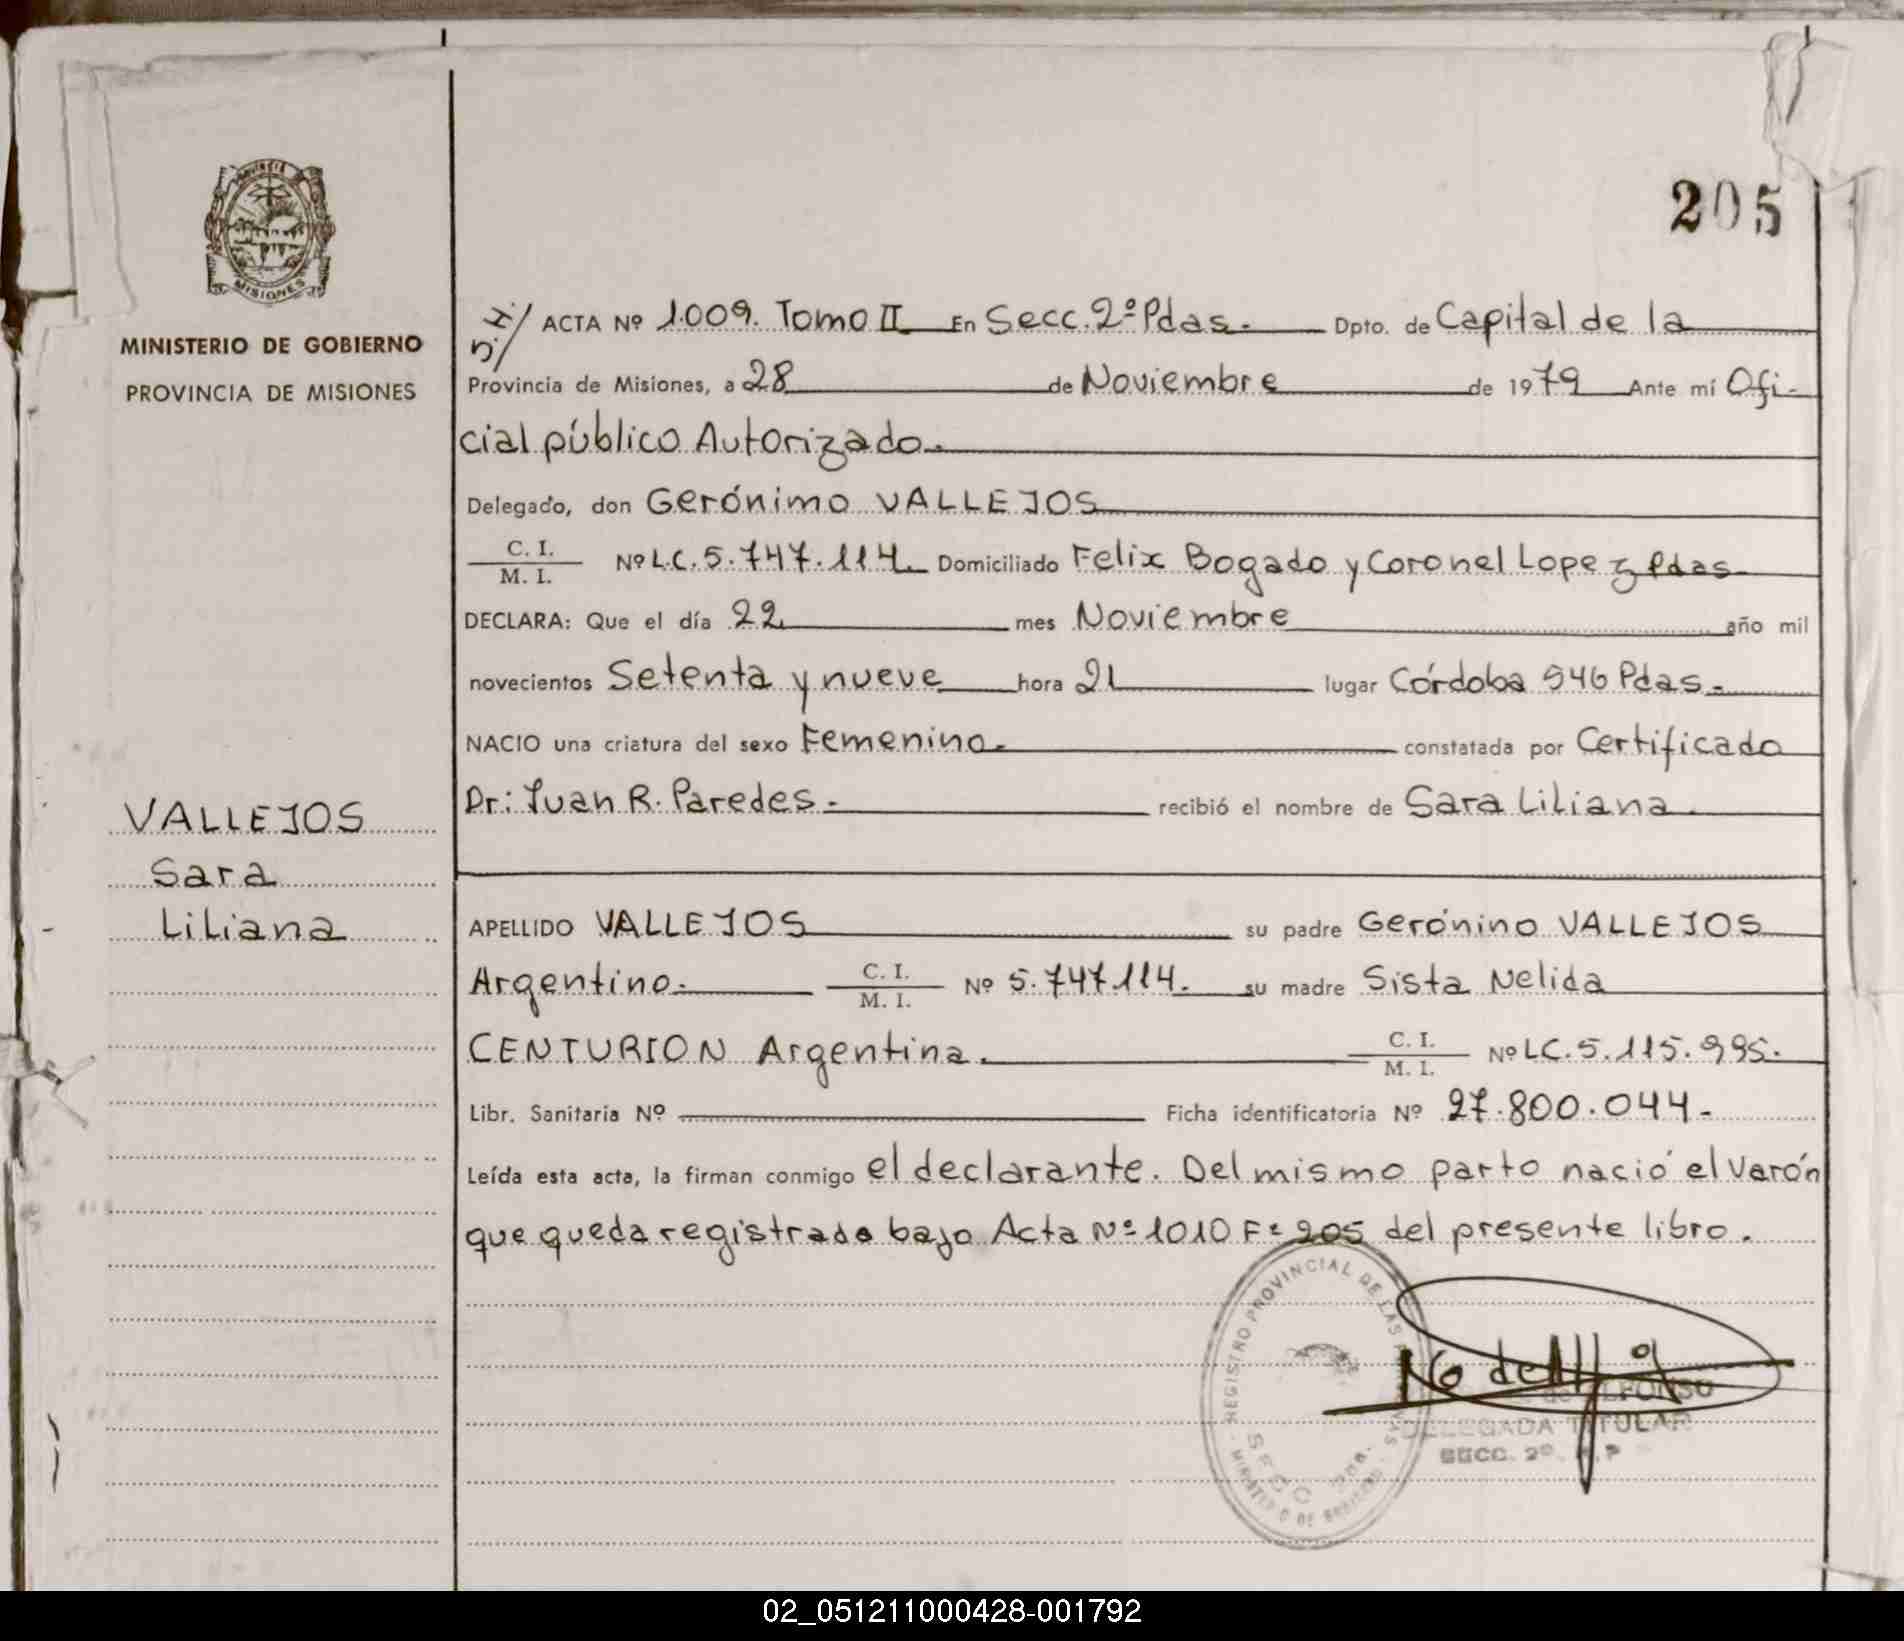 205
PROVINCIA
MISIONES
MINISTERIO DE GOBIERNO
PROVINCIA DE MISIONES
VALLEJOS
Sara
Liliana
D.H/ ACTA Nº 1.009. Tomo II En Secc. 2º Pdas. Dpto. de Capital de la
Provincia de Misiones, a 28 de Noviembre de 1979 Ante mí Ofi-
cial público Autorizado.
Delegado, don Gerónimo VALLEJOS
C. I.
M. I.
Nº L.C. 5.747.114. Domiciliado Felix Bogado y Coronel Lopez Pdas
DECLARA: Que el día 22 mes Noviembre año mil
novecientos Setenta y nueve hora 21 lugar Córdoba 546 Pdas.
NACIO una criatura del sexo Femenino. constatada por Certificado
Dr: Juan R. Paredes. recibió el nombre de Sara Liliana.
APELLIDO VALLEJOS su padre Gerónino VALLEJOS
Argentino. C. I.
M. I. Nº 5.747.114. su madre Sista Nelida
CENTURION Argentina. C. I.
M. I. Nº LC. 5.115.995.
Libr. Sanitaria Nº Ficha identificatoria Nº 27.800.044.
Leída esta acta, la firman conmigo el declarante. Del mismo parto nació el varón
que queda registrado bajo Acta Nº 1010 Fº 205 del presente libro.
REGISTRO PROVINCIAL DE LAS
SECC
de ALFONSO
DELEGADA TITULAR
SECC. 2º.
02_051211000428-001792